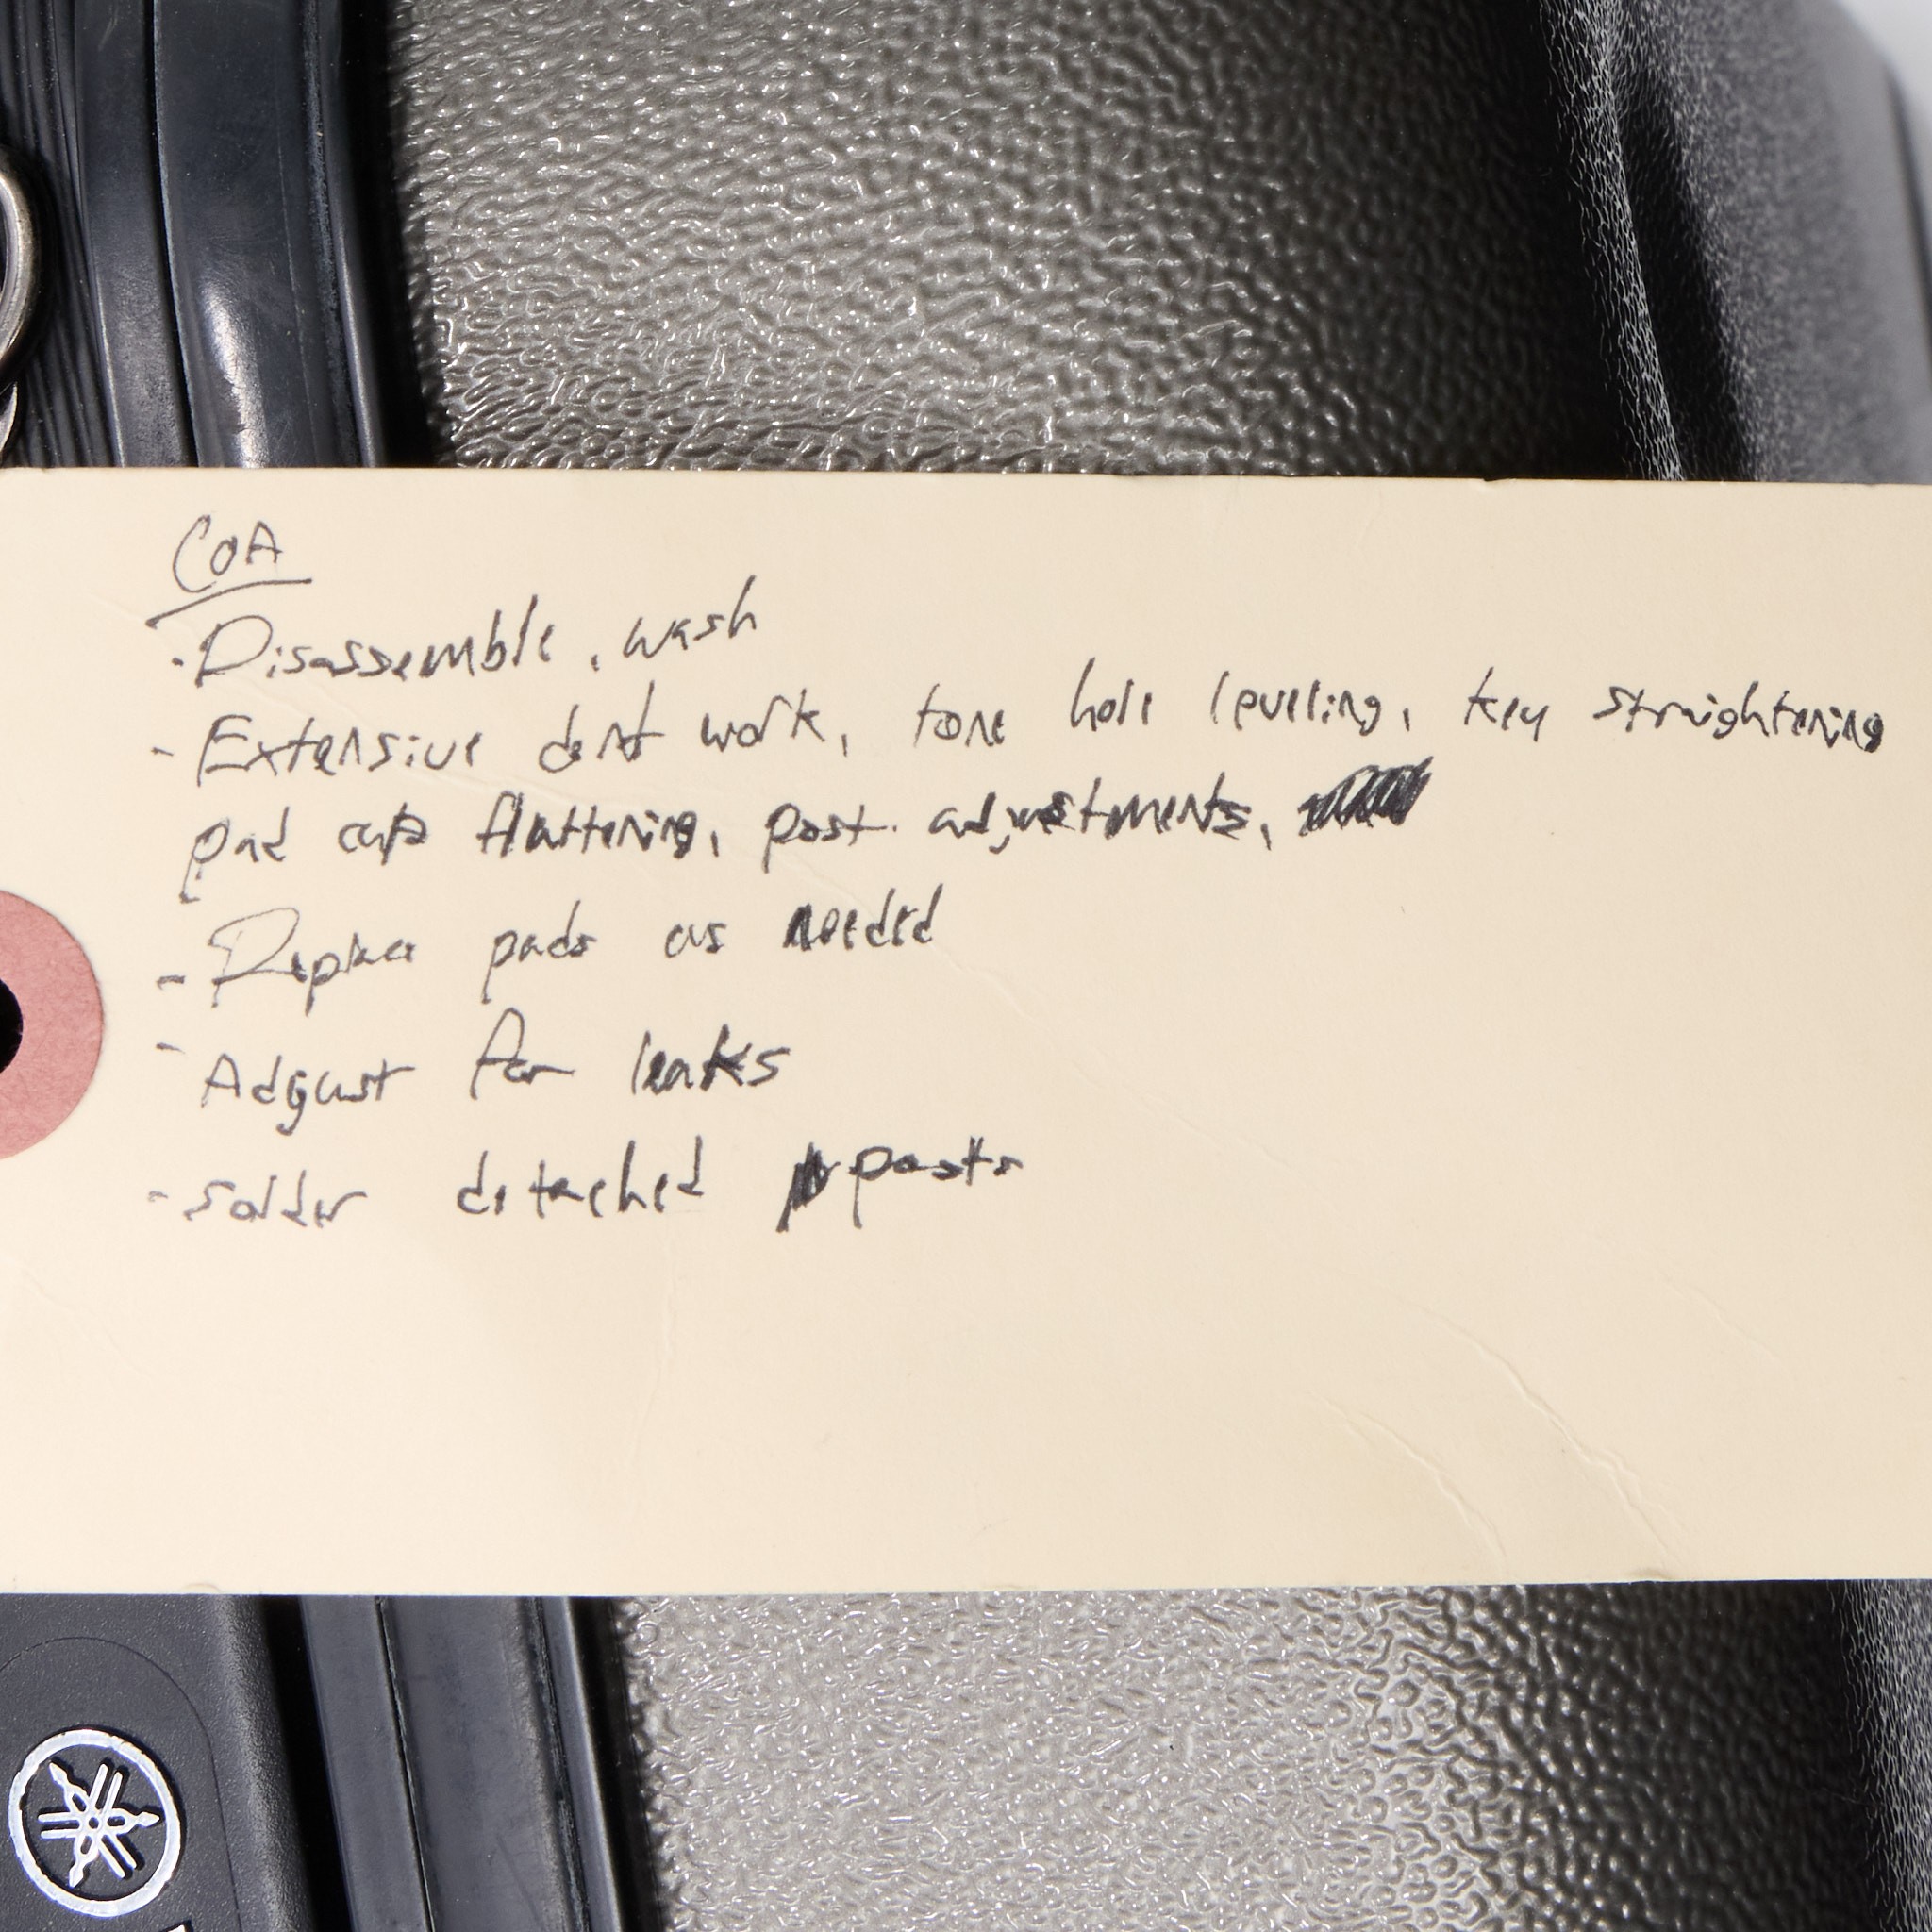 COA
- Disassemble, wash
- Extensive dent work, tone hole leveling, key straightening
pad cup flattening, post adjustments,
- Replace pads as needed
- Adjust for leaks
- solder detached posts